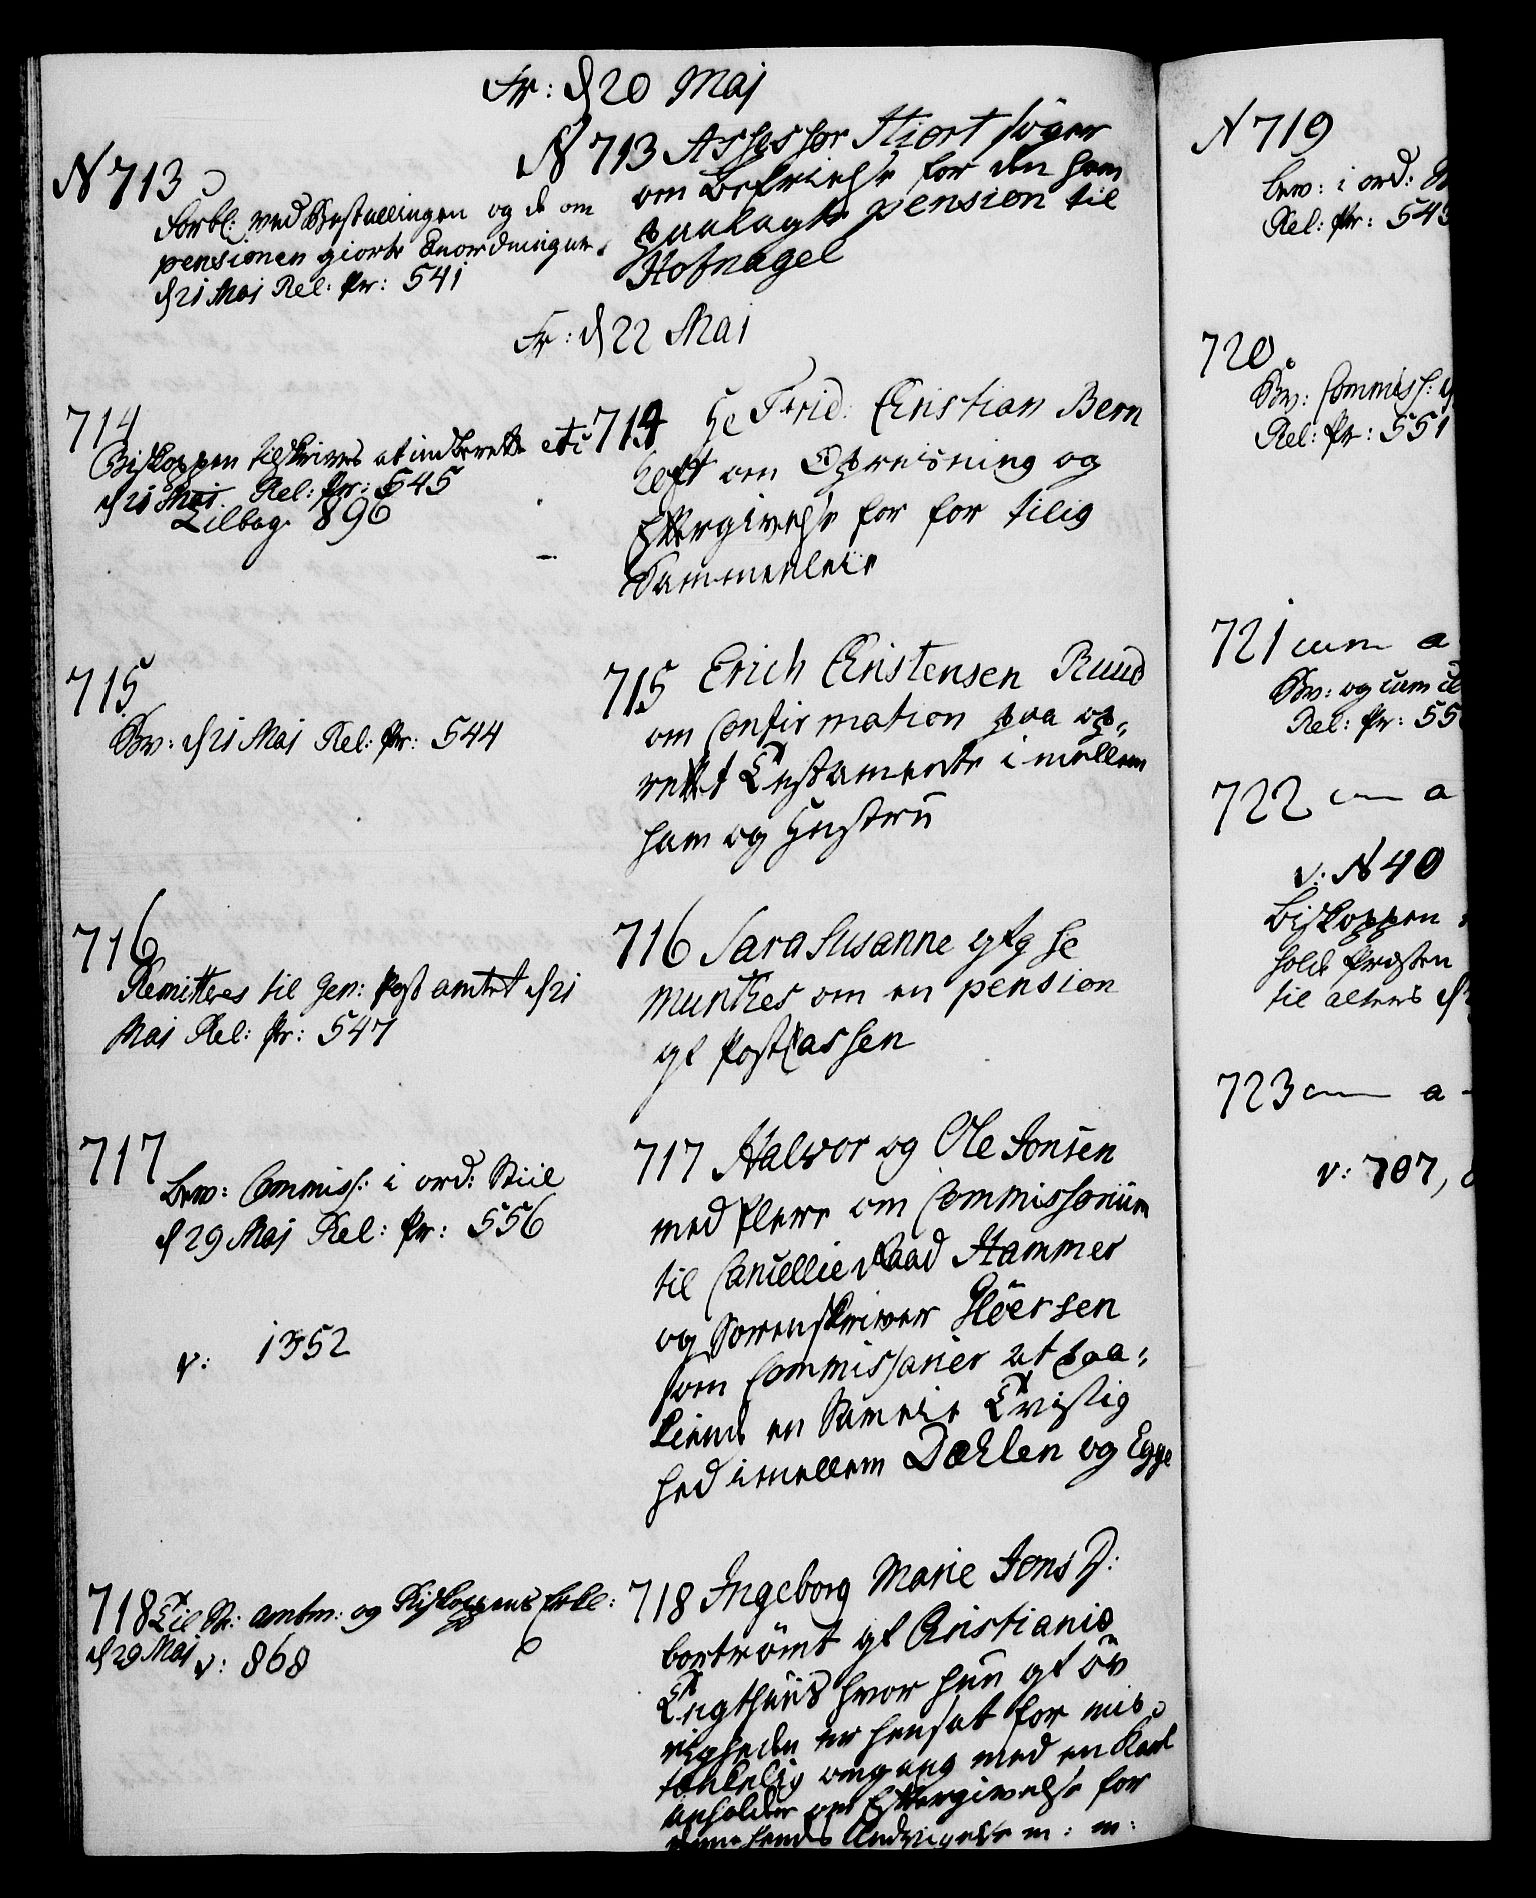 Fr: d 20 Maj
N 713
forbl: ved Bestallingen og de om
pensionen giorte Anordninger.
d 21 Maj Rel: Pr: 541
N 713 Assessor Hiort søger
om Befrielse for den ham
paalagte pension til
Hofnagel
Fr: d 22 Mai
714
Biskoppen tilskrives at indberette etc
d 21 Mai. Rel: Pr: 545
Tilbag 896
714 He Frid: Christian Bern
hoft om Opreisning og
Eftergivelse for for tilig
Sammenleie
715
Bev: d 21 Mai Rel: Pr: 544
715 Erich Christensen Ruud
om Confirmation paa op-
rettet Testamente imellem
ham og Hustru
716
Remitteres til Gen: Post amtet d 21
Maj Rel: Pr: 547
716 Sara Susanne afg he
Munthes om en pension
af Post Cassen
717
bev: Commiss: i ord: Stiil
d 29 Maj Rel: Pr: 556
v: 1352
717 Halvor og Ole Jonsen
med flere om Commissorium
til Cancellie Raad Hammer
og Sorenskriver Høersen
som Commissarier at paa-
kiende en Sameie Tvistig
hed imellem Dæhlen og Egge
718 Til St: amtm: og Biskoppens Erkl:
d 29 Maj v: 868
718 Ingeborg Marie Jens D:
bortrømt af Christianiæ
Tugthuus hvor hun af Øv
righeden er hensat for mis-
tænkelig omgang med en Karl
anholder om Eftergivelse for
m: m:
N 719
bev: i ord:
Rel: Pr: 543
720.
Bev: Commiss:
Rel: Pr: 551
721 cum a
Bev: og cum
Rel: Pr: 55
722 a
v: N 40
Biskoppen
holde Præsten
til alters d
723 a
v: 707,